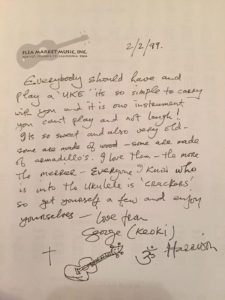 FLEA MARKET MUSIC, INC.
2/2/99.
Everybody should have and
play a 'UKE' its so simple to carry
with you and it is one instrument
you cant play and not laugh!
Its so sweet and also very old -
some are made of wood - some are made
of armadillo's. I love them - the more
the merrier - Everyone I know who
is into the ukulele is 'crackers'
so get yourself a few and enjoy
yourselves - love from
George (Keoki)
ॐ Harrison